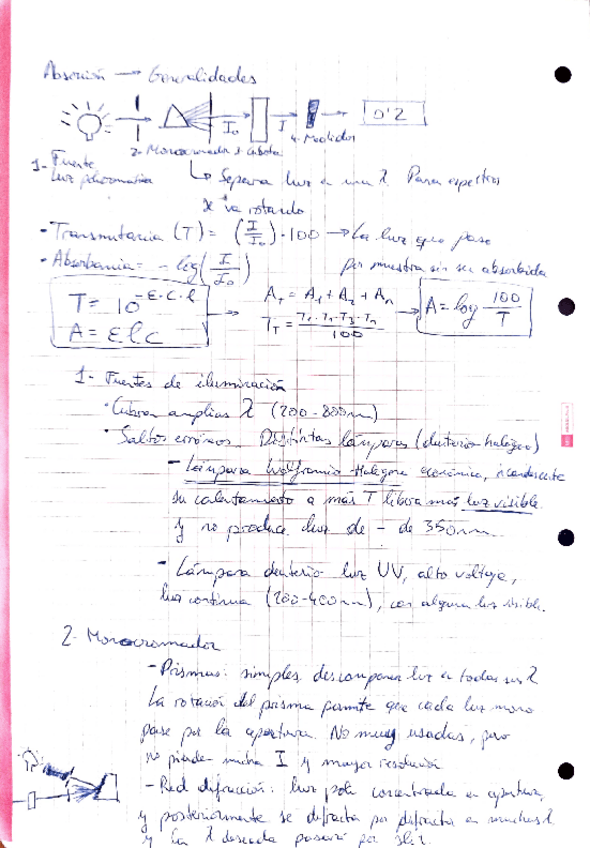 Absorción → Generalidades
I₀ I 0'2
2- Monocromador 3 Cubeta 4- Medidor
1- Fuente
luz policromatica
↳ Separa luz a una λ Para espectros
x va rotando
- Transmitancia (T) = (I/I₀)·100 → La luz que pasa
- Absorbancia = - log(I/I₀) por muestra sin ser absorbida
T = 10^-ε·c·l
A = εlc
A_T = A₁ + A₂ + Aₙ
T_T = T₁·T₂·T₃·Tₙ / 100
A = log 100/T
1- Fuentes de iluminación
· Cubran amplias λ (200-800nm)
· Saltos erróneos Distintas lámparas (deuterio halógeno)
- Lámpara Wolframio-Halógena económica, incandescente
su calentamiento a más T libera más luz visible
y no produce luz de - de 350nm.
- Lámpara deuterio luz UV, alto voltaje,
luz continua (200-400nm), con alguna luz visible.
2- Monocromador
- Prismas: simples, descomponen luz en todas sus λ
La rotación del prisma permite que cada luz mono
pase por la apertura. No muy usadas, pero
no pierde mucha I y mayor resolución
- Red difracción: luz poli concentrada en apertura,
y posteriormente se difracta por difracta en muchas λ
y la λ deseada pasará por slit.